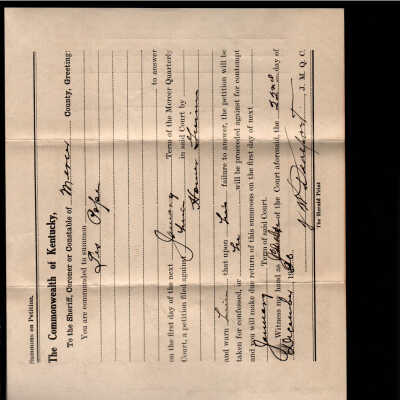 Summons on Petition.
The Commonwealth of Kentucky,
To the Sheriff, Coroner or Constable of Mercer County, Greeting:
You are commanded to summon
Pope
to answer
on the first day of the next January Term of the Mercer Quarterly
Court, a petition filed against him in said Court by
Homer
and warn him that upon his failure to answer, the petition will be
taken for confessed, or he will be proceeded against for contempt
and you will make due return of this summons on the first day of next
January Term of said Court.
Witness my hand as Judge of the Court aforesaid, the 22nd day of
December
J. M. Q. C.
The Herald Print